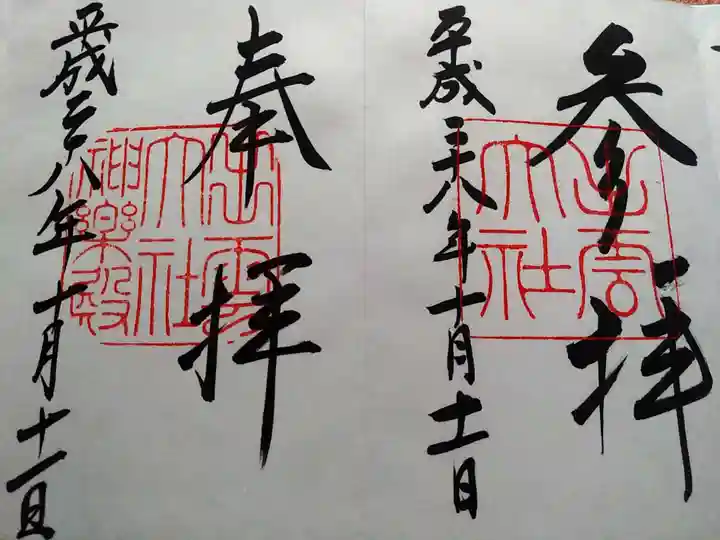 参拝
出雲
大社
平成二十八年十月十一日
奉拝
出雲
大社
神楽殿
平成二十八年十月十一日